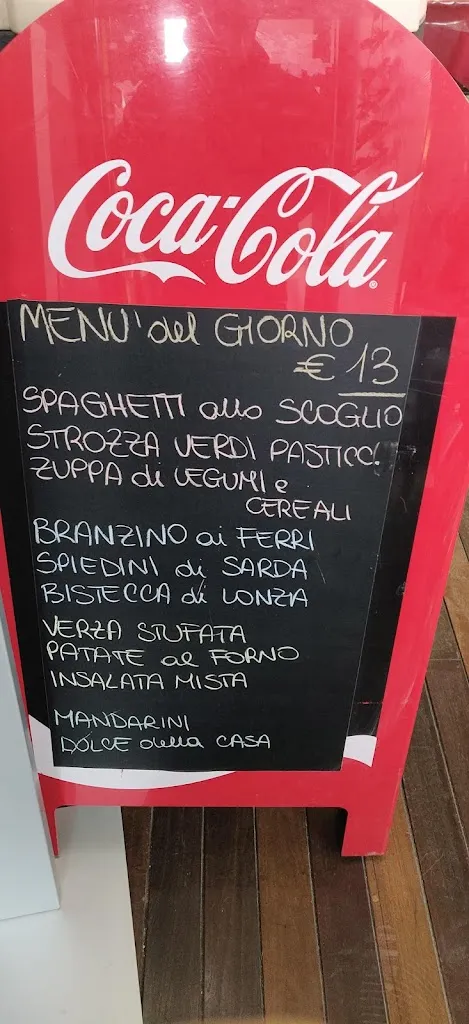 Coca-Cola
MENU' del GIORNO
€ 13
SPAGHETTI allo SCOGLIO
STROZZA VERDI PASTICC.
ZUPPA di LEGUMI e
CEREALI
BRANZINO ai FERRI
SPIEDINI di SARDA
BISTECCA di LONZA
VERZA STUFATA
PATATE al FORNO
INSALATA MISTA
MANDARINI
DOLCE della CASA